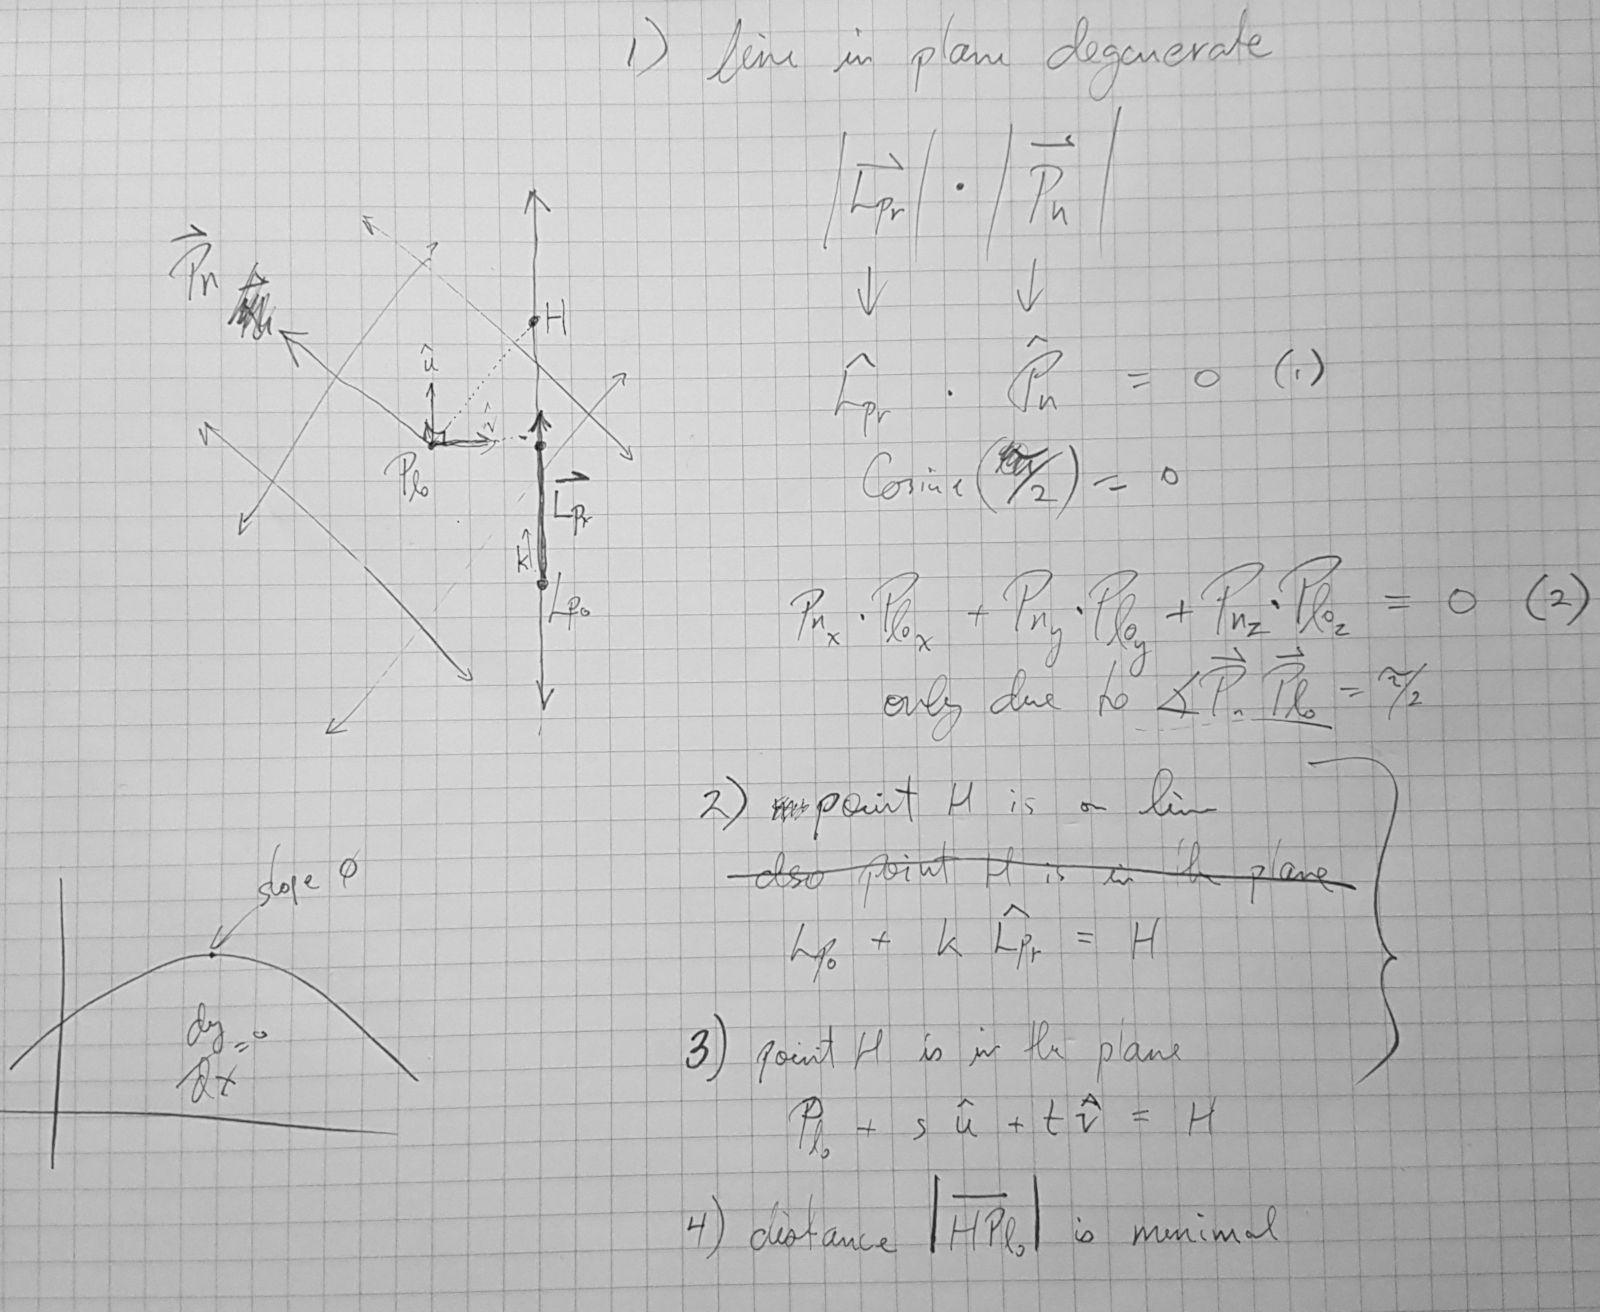 1) line in plane degenerate
|L⃗pr| · |P⃗n|
↓ ↓
L̂pr · P̂n = 0 (1)
Cosine(π/2) = 0
Pnx · Plox + Pny · Ploy + Pnz · Ploz = 0 (2)
only due to ∡P⃗n P⃗lo = π/2
2) point H is on line
also point H is in the plane
Lpo + k L̂pr = H
3) point H is in the plane
Plo + s û + t v̂ = H
4) distance |HPlo| is minimal
P⃗n
H
û
v̂
Plo
L⃗pr
k
Lpo
slope 0
dy/dx = 0